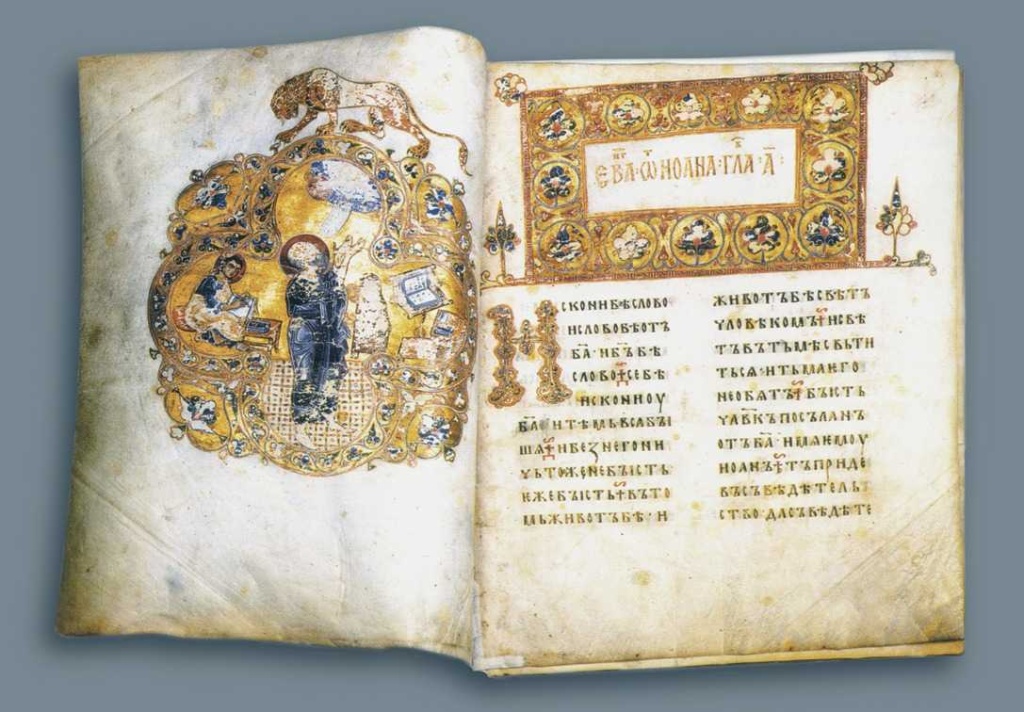 ЕВⷢ҇Аⷮ·Ѡ·ИОАНА·ГЛАⷡ·А҃·
ИСКОНИБѢСЛОВО
ИСЛОВОБѢОТЪ
Б҃А·ИБ҃ЪБѢ
СЛОВО·СЕБѢ
ИСКОНИОУ
Б҃А·ИТѢМЬВСАБЫ
ШѦ·ИБЕЗНЕГОНИ
ЧЬТОЖЕНЕБЫСТЬ
ЕЖЕБЫСТЬ·ВЪТО
МЬЖИВОТЪБѢ·И
ЖИВОТЪБѢСВѢТЪ
ЧЛОВѢКОМЪ·ИСВѢ
ТЪВЪТЬМѢСВЬТИ
ТЬСѦ·ИТЬМАѤГО
НЕОБѦТЪ·БЫСТЬ
ЧЛ҃ВКЪПОСЪЛАНЪ
ОТЪБ҃А·ИМѦѤМОУ
ИОАНЪ·ТЪПРИДЕ
ВЪСЪВѢДѢТЕЛЬ
СТВО·ДАСЪВѢДѢТЕ